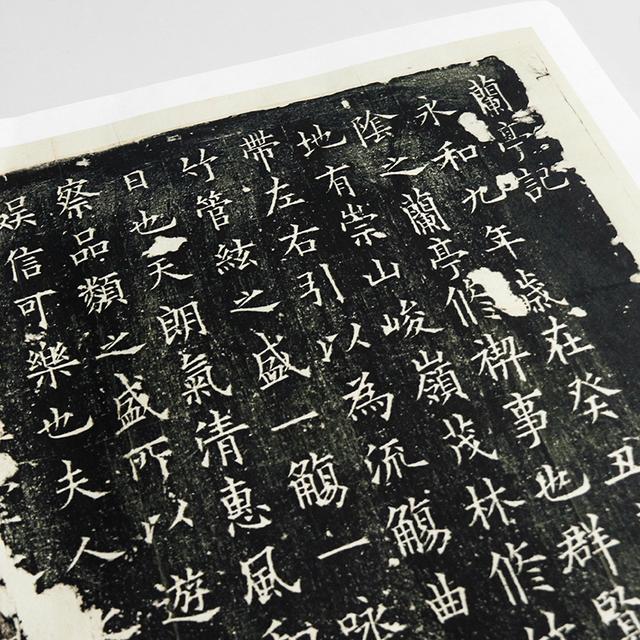 蘭亭記
永和九年歲在癸丑
陰之蘭亭修禊事也群賢
地有崇山峻嶺茂林修
帶左右引以為流觴曲
竹管絃之盛一觴一詠
日也天朗氣清惠風和
察品類之盛所以遊
娛信可樂也夫人之